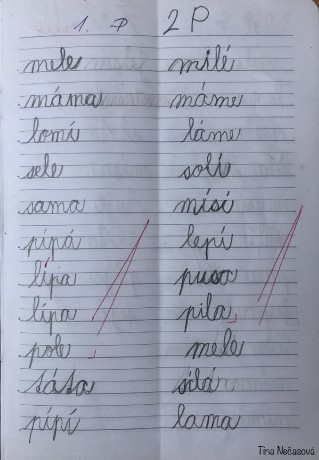 1. P
mele
máma
lomí
sele
sama
pípá
lípa
lípa
pole
táta
pípí
2 P
milé
máme
láme
solí
mísí
lepí
pusa
pila
mele
lama
Tina Nečasová